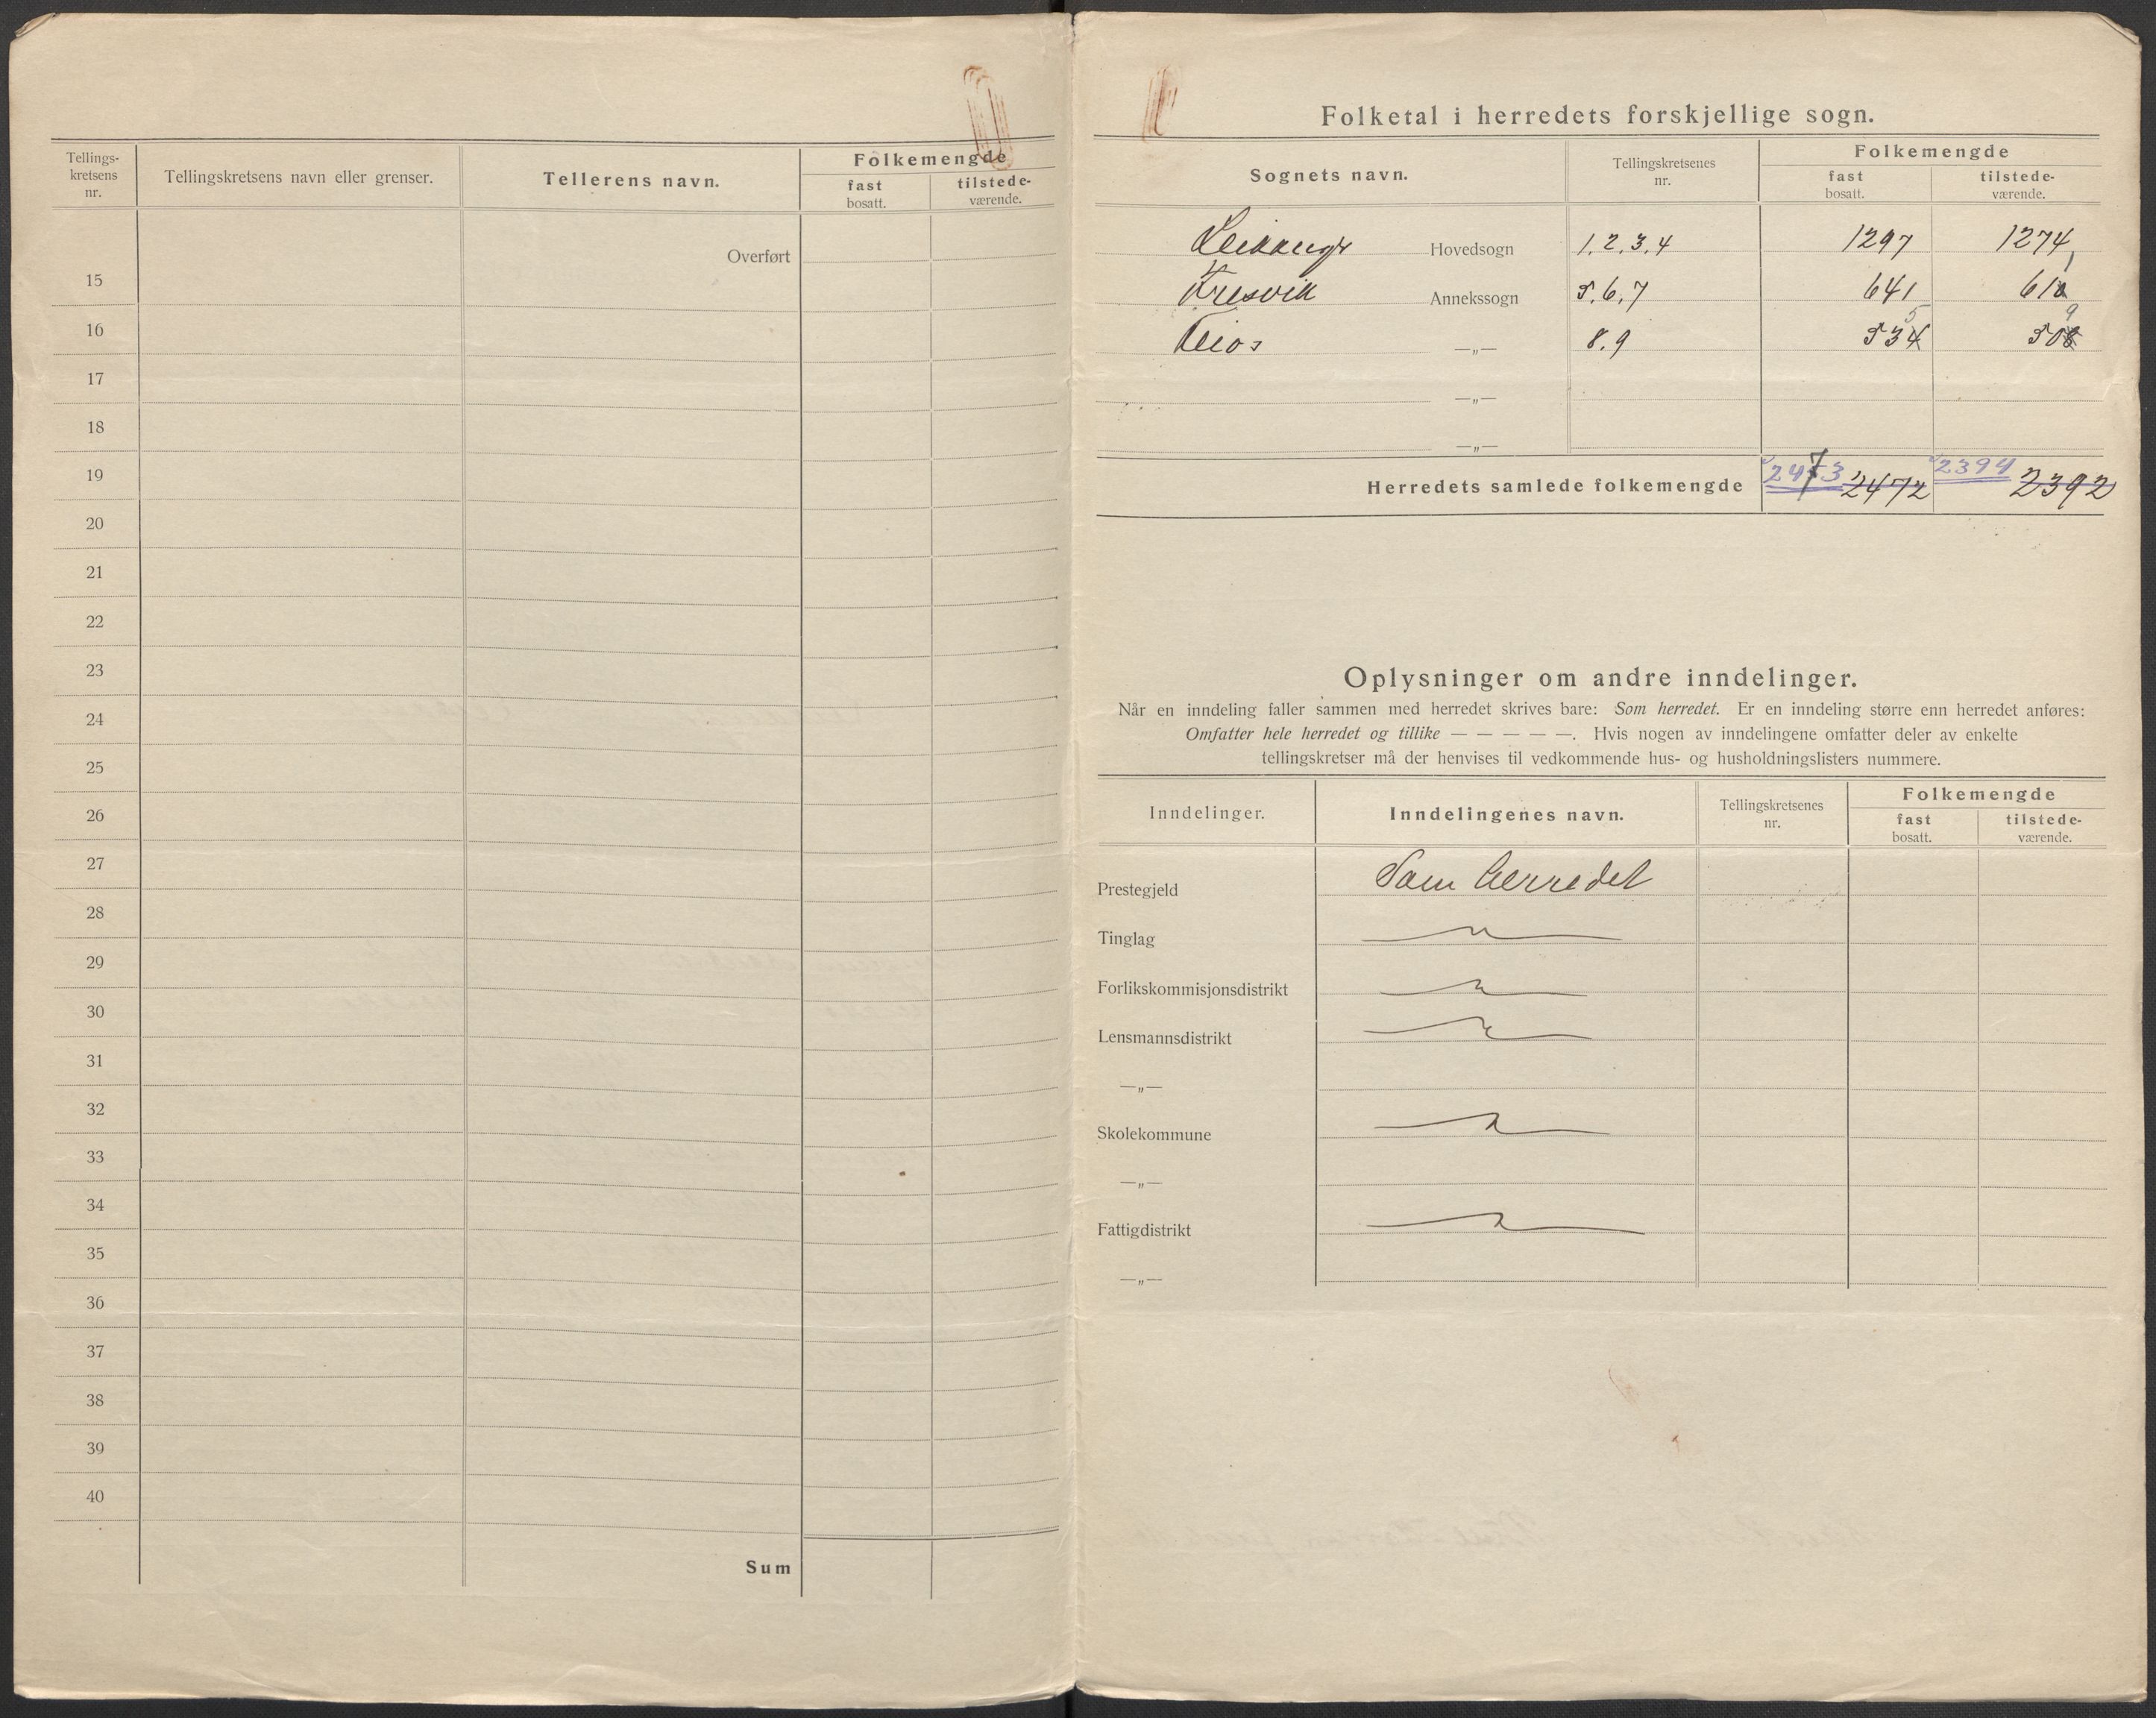 Tellings-
kretsens
nr.
Tellingskretsens navn eller grenser.
Tellerens navn.
Folkemengde
fast
bosatt.
tilstede-
værende.
Overført
15
16
17
18
19
20
21
22
23
24
25
26
27
28
29
30
31
32
33
34
35
36
37
38
39
40
Sum
Folketal i herredets forskjellige sogn.
Sognets navn.
Tellingskretsenes
nr.
Folkemengde
fast
bosatt.
tilstede-
værende.
Leikanger Hovedsogn 1.2.3.4 1297 1274
1
Fresvik Annekssogn 5.6.7 641 610
5 9
Feios —„— 8.9 534 508
—„—
—„—
Herredets samlede folkemengde 2473 2472 2394 2392
Oplysninger om andre inndelinger.
Når en inndeling faller sammen med herredet skrives bare: Som herredet. Er en inndeling større enn herredet anføres:
Omfatter hele herredet og tillike — — — — —. Hvis nogen av inndelingene omfatter deler av enkelte
tellingskretser må der henvises til vedkommende hus- og husholdningslisters nummere.
Inndelinger.
Inndelingenes navn.
Tellingskretsenes
nr.
Folkemengde
fast
bosatt.
tilstede-
værende.
Prestegjeld Som herredet
Tinglag —„—
Forlikskommisjonsdistrikt —„—
Lensmannsdistrikt —„—
—„—
Skolekommune —„—
—„—
Fattigdistrikt —„—
—„—